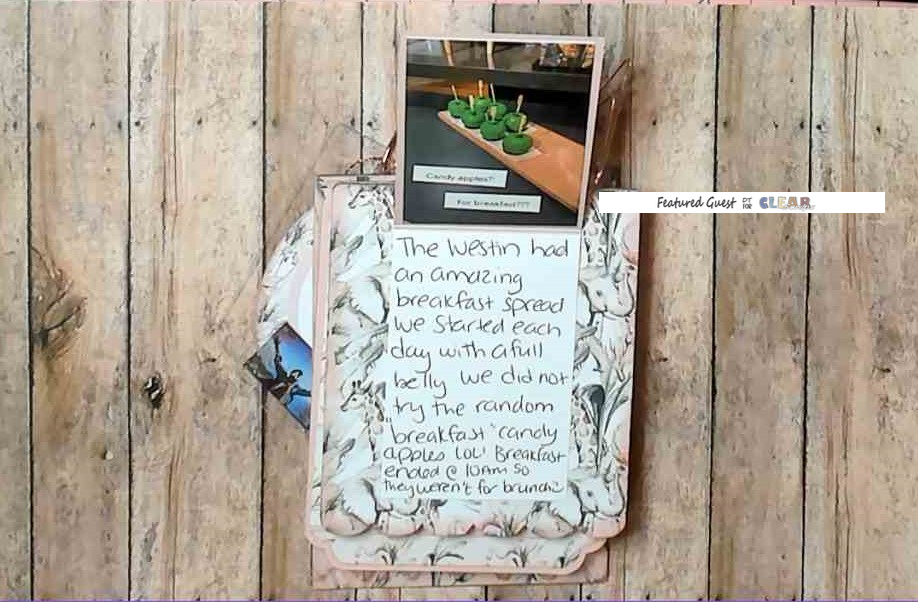 Candy apples?!
For breakfast???
Featured Guest DT
FOR CLEAR
The Westin had
an amazing
breakfast spread
we started each
day with a full
belly we did not
try the random
breakfast "candy
apples LOL! Breakfast
ended @ 10AM so
they weren't for brunch